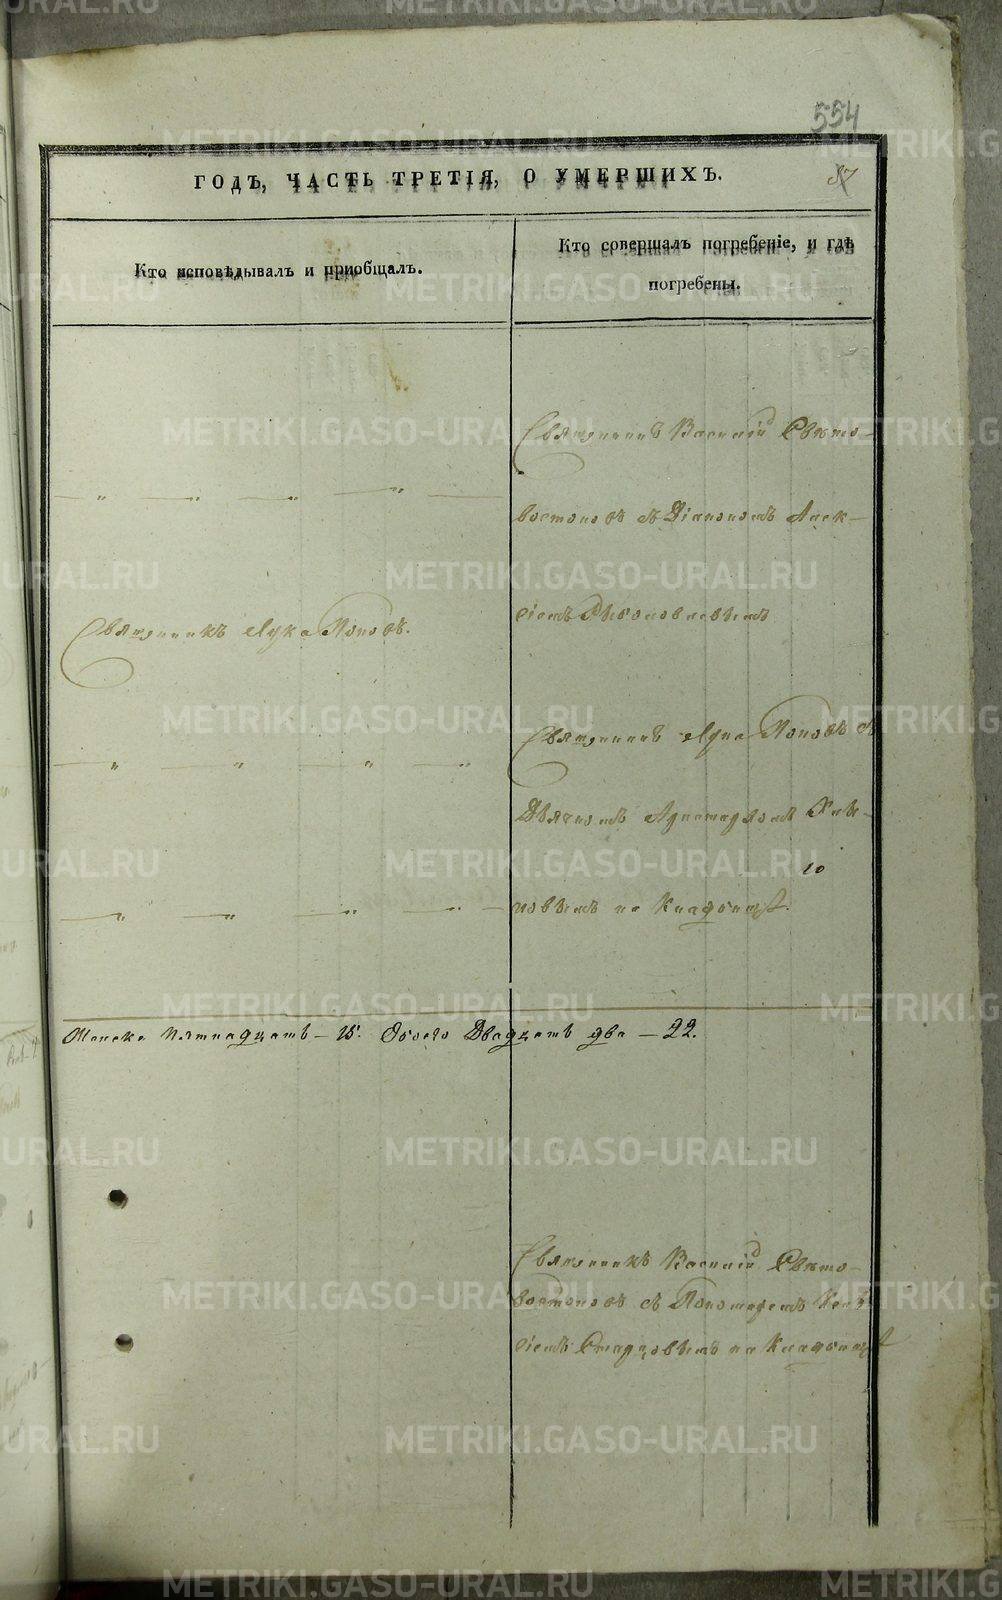 554
ГОДЪ, ЧАСТЬ ТРЕТІЯ, О УМЕРШИХЪ.
87
Кто исповѣдывалъ и приобщалъ.
Кто совершалъ погребеніе, и гдѣ
погребены.
Священникъ Василій Свѣто-
востоковъ съ Діакономъ Алек-
сіемъ
Священникъ Лука Поповъ.
Священникъ Лука Поповъ съ
Дьячкомъ Аристархомъ
на Кладбищѣ.
Женска Пятнадцать – 15. Обоего Двадцать два – 22.
Священникъ Василій Свѣто-
востоковъ съ Пономаремъ
на Кладбищѣ
METRIKI.GASO-URAL.RU